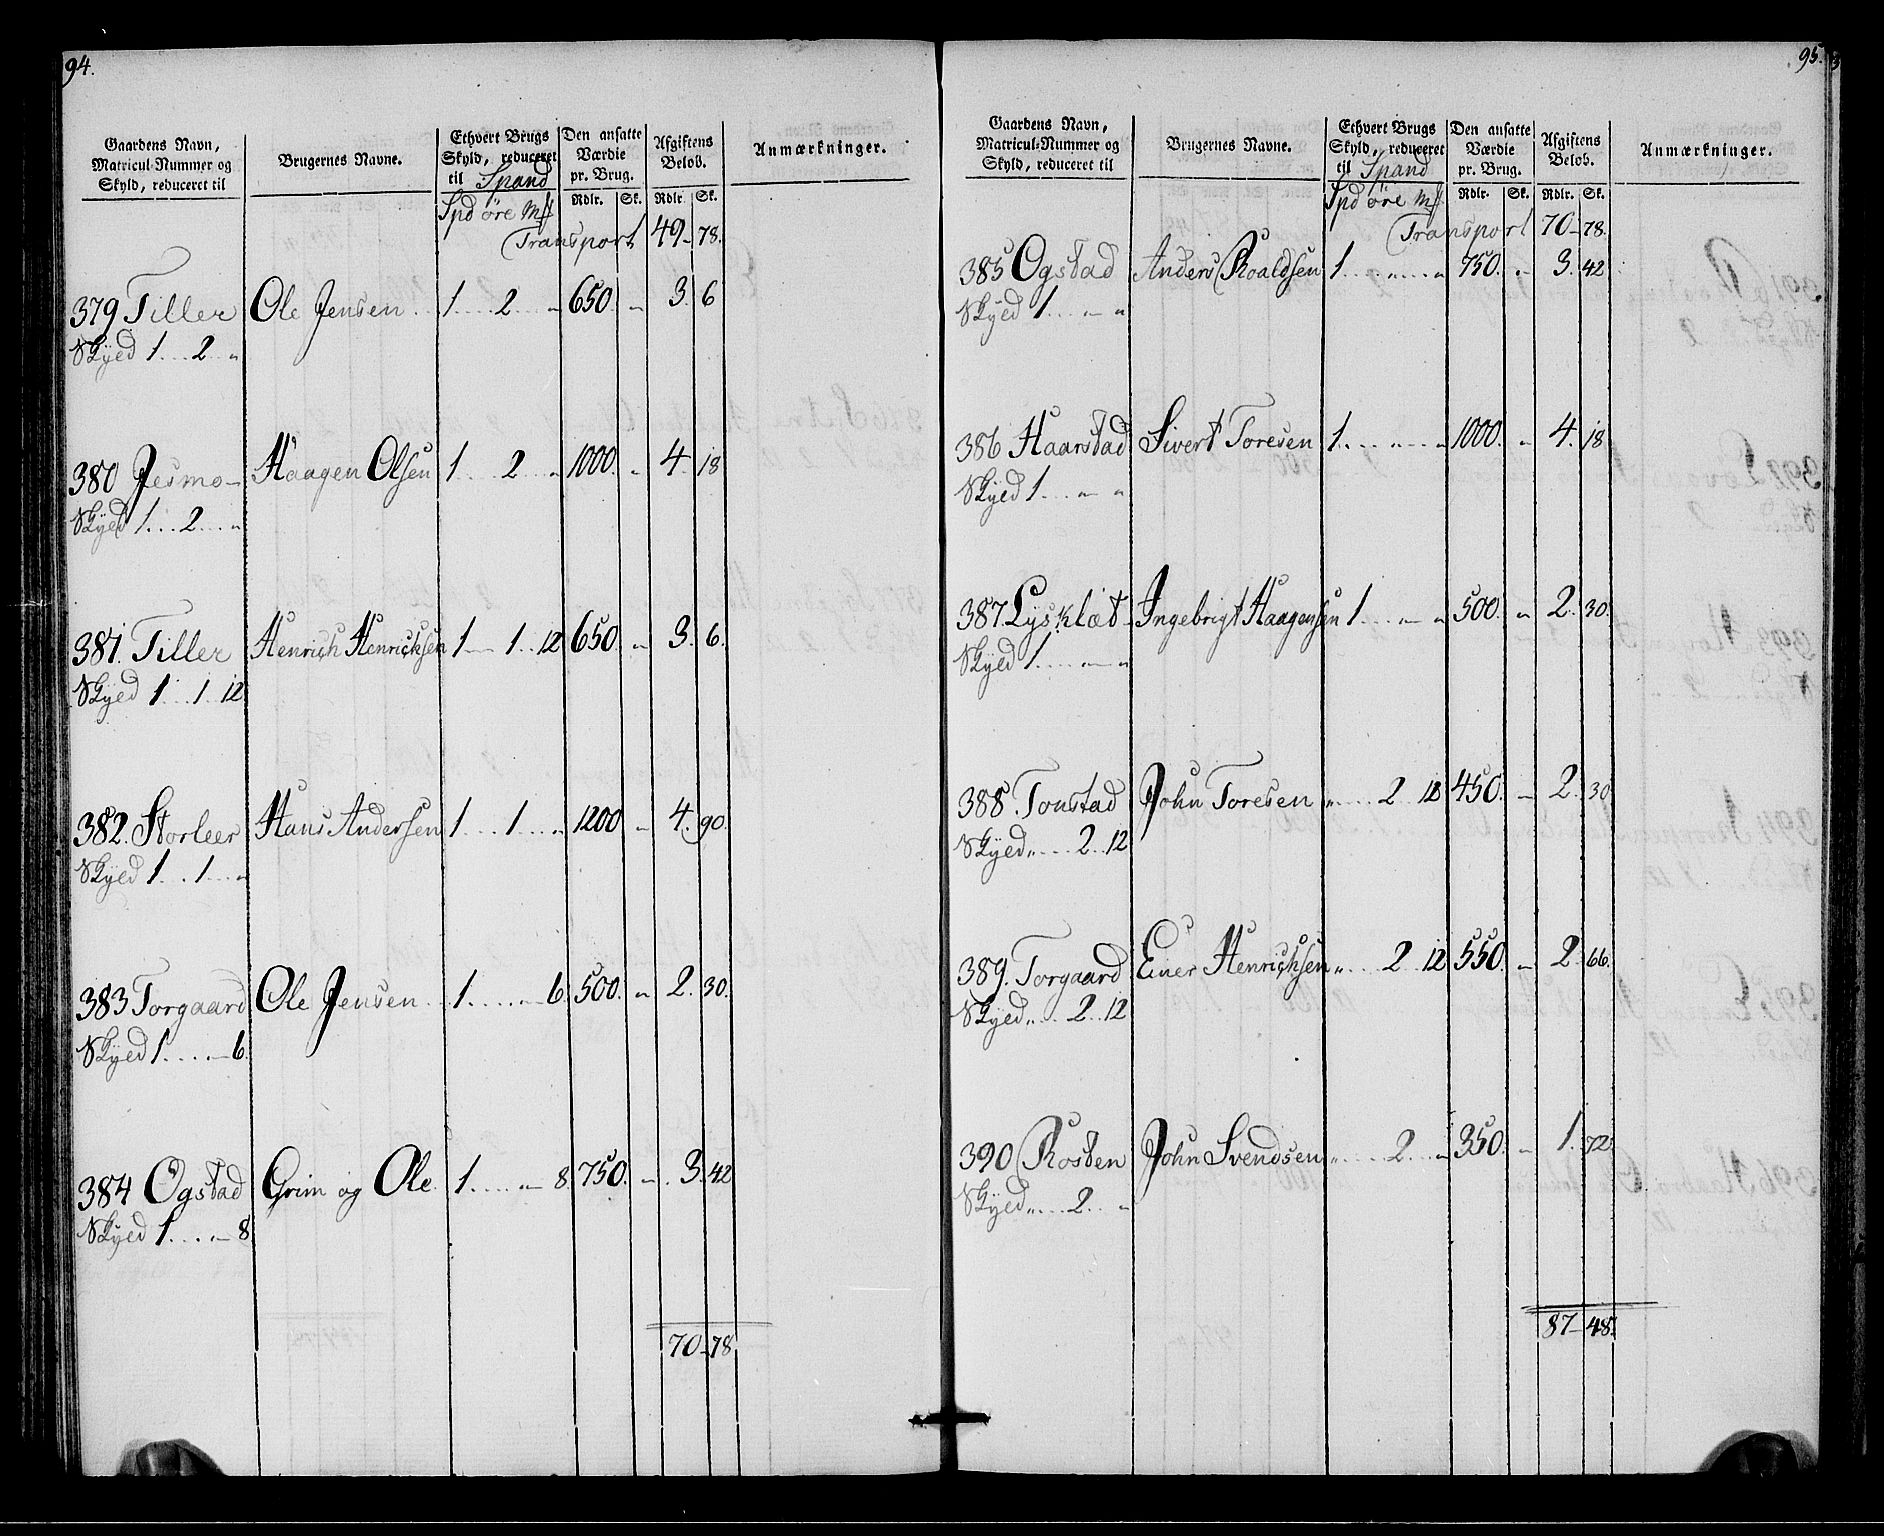 94.
Gaardens Navn, Matricul-Nummer og Skyld, reduceret til
Brugernes Navne.
Ethvert Brugs Skyld, reduceret til Spand
Den ansatte Værdie pr. Brug.
Afgiftens Beløb.
Anmærkninger.
Spd øre Mk Rdlr. Sk. Rdlr. Sk.
Transport 49 - 78.
379 Tiller Ole Jensen 1 . . . 2 . . . " 650. " 3. 6
Skyed 1 . . . 2 . . "
380 Jesmo - Haagen Olsen 1 . . . 2 . . . " 1000. " 4. 18
Skyed 1 . . . 2 . . . "
381. Tiller Henrich Henrichsen 1 . . 1 . . 12 650. " 3. 6.
Skyed 1 . . . 1 . . 12
382. Storleer Hans Andersen 1 . . . 1 . . . " 1200 " 4. 90.
Skyed 1 . . . 1 . . . "
383 Torgaard Ole Jensen 1 . . . . " 6. 500. " 2. 30.
Skyed 1 . . . . " 6.
384 Ogstad Grim og Ole 1 . . . . " 8. 750. " 3. 42
Skyed 1 . . . . " 8
70 - 78
95.
Gaardens Navn, Matricul-Nummer og Skyld, reduceret til
Brugernes Navne.
Ethvert Brugs Skyld, reduceret til Spand
Den ansatte Værdie pr. Brug.
Afgiftens Beløb.
Anmærkninger.
Spd øre Mk Rdlr. Sk. Rdlr. Sk.
Transport 70 - 78.
385 Ogstad Anders Roaldsen 1 . . . " . . . " 750. " 3. 42
Skyed 1 . . . " . . "
386 Haarstad Sivert Toresen 1 . . . " . . . " 1000. " 4. 18
Skyed 1 . . . " . . "
387 Lysklæt - Ingebrigt Haagensen 1 . . . " . . " 500. " 2. 30.
Skyed 1 . . . " . . "
388. Tonstad John Toresen " . . . 2 . . 12 450. " 2. 30
Skyed " . . . 2 . . 12
389. Torgaard Einer Henrichsen " . . . 2 . . 12 550. " 2. 66.
Skyed " . . . 2 . . 12
390 Rosten John Svendsen " . . . 2 . . . " 350. " 1. 72.
Skyed " . . . 2 . . "
87 - 48.